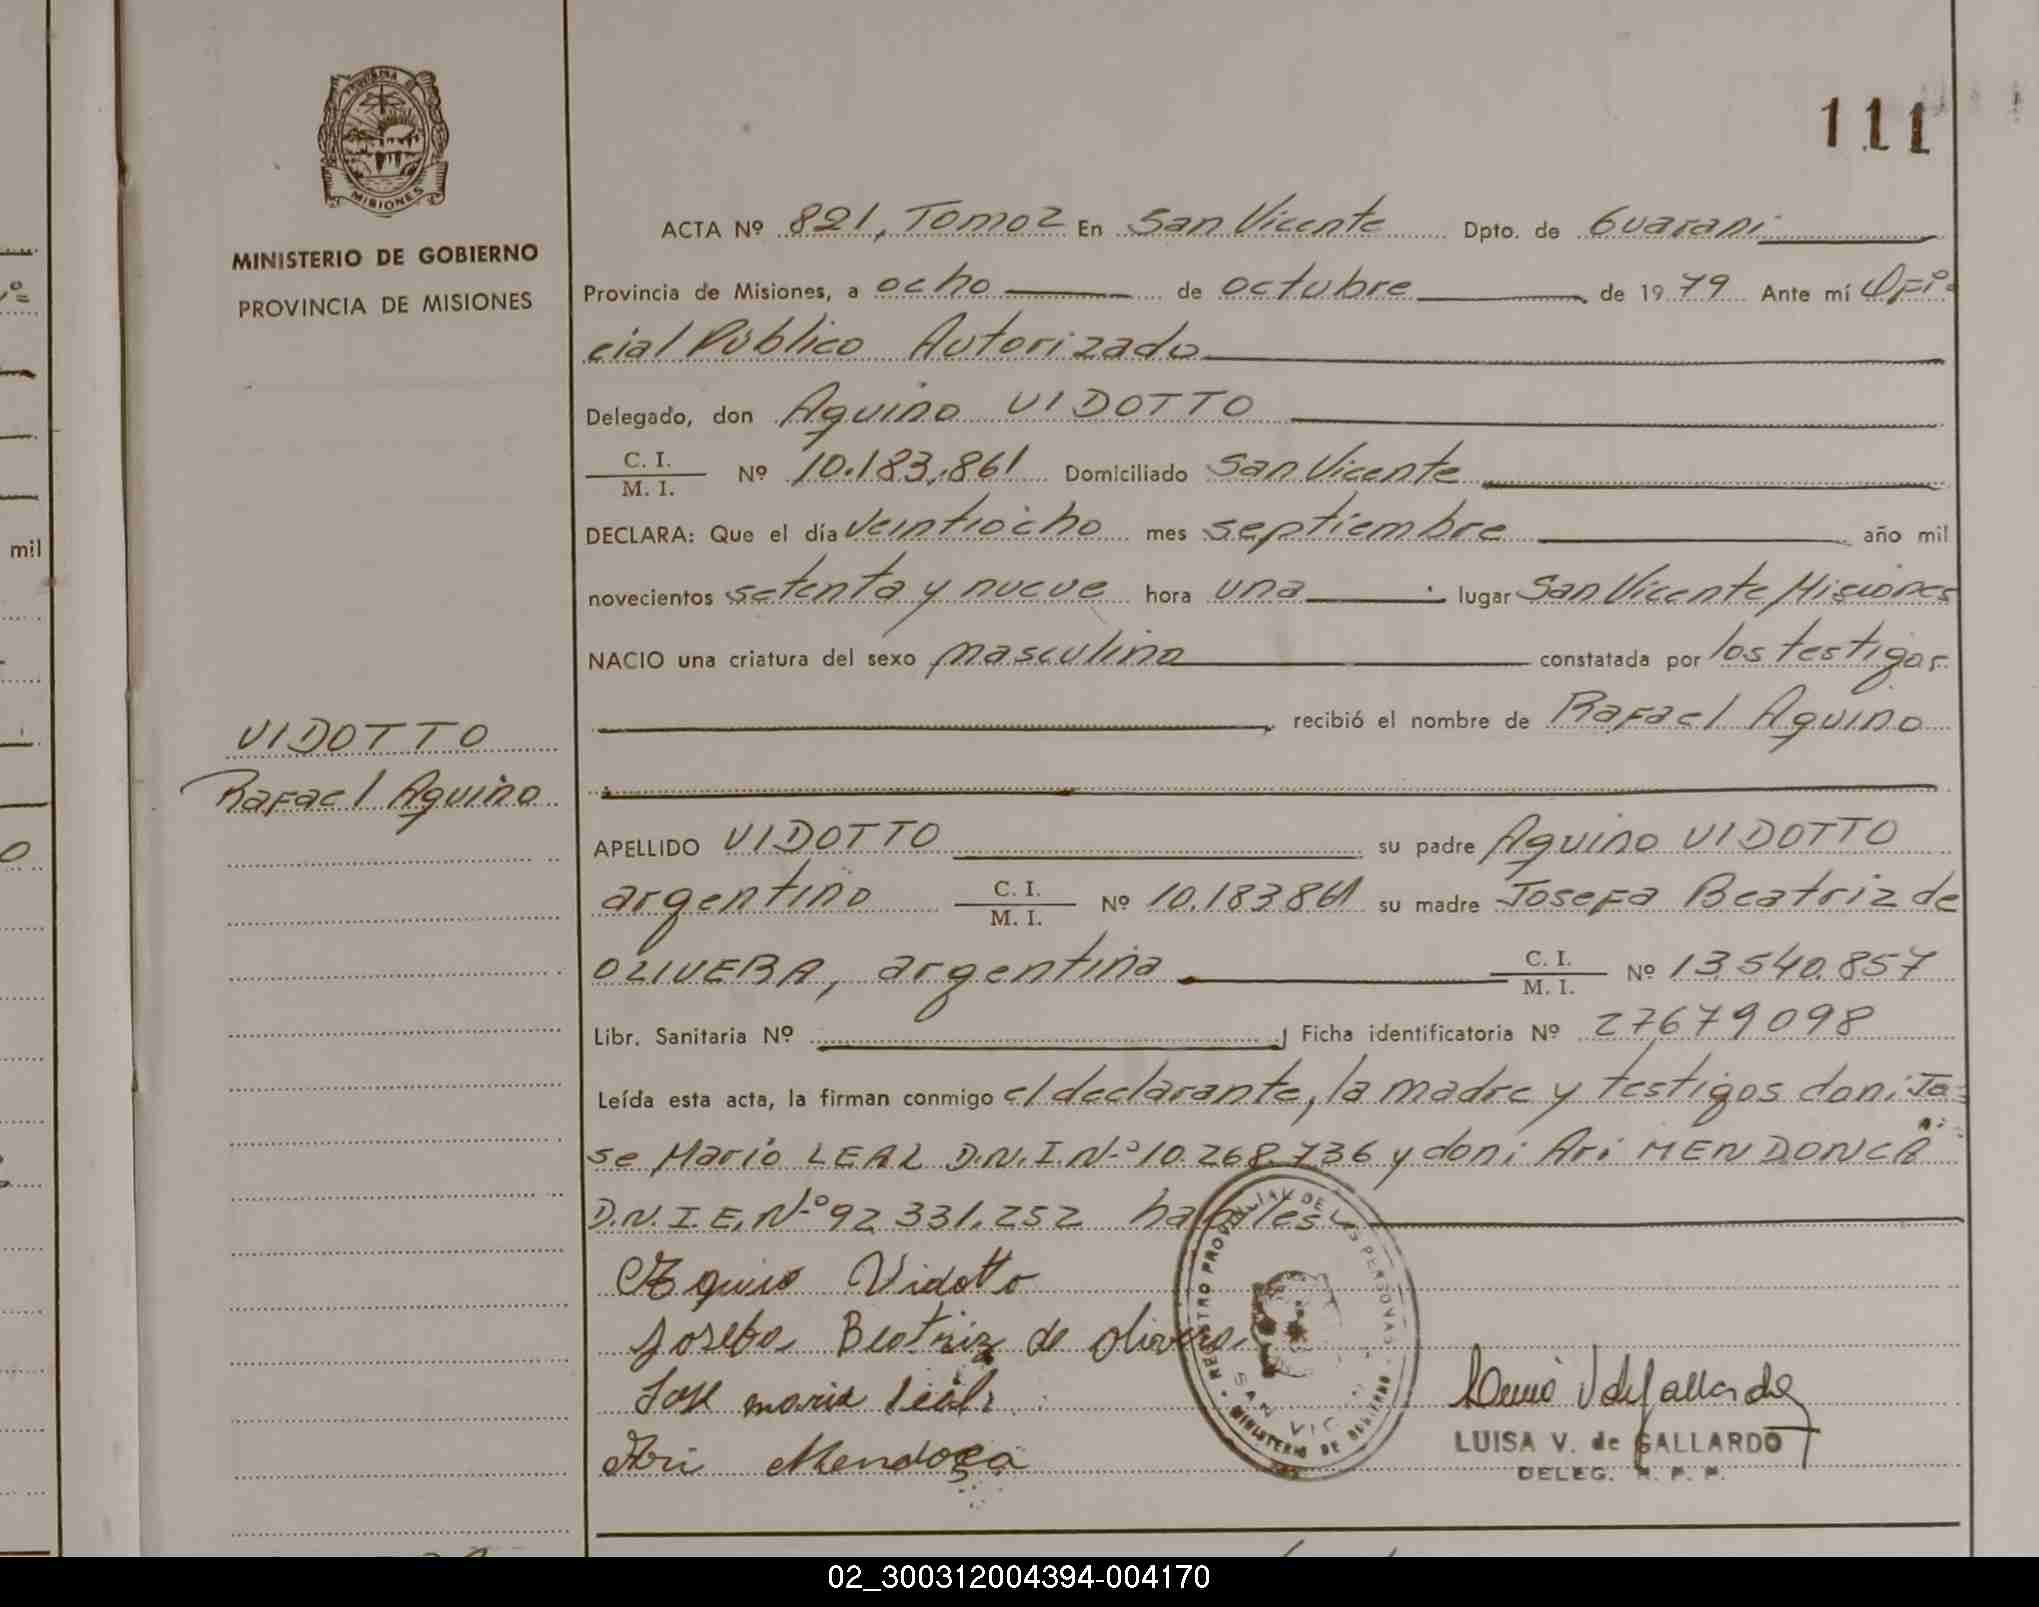 111
PROVINCIA DE
MISIONES
MINISTERIO DE GOBIERNO
PROVINCIA DE MISIONES
VIDOTTO
Rafael Aquino
ACTA Nº 821, Tomo 2 En San Vicente Dpto. de Guaraní
Provincia de Misiones, a ocho de octubre de 1979 Ante mí Ofi-
cial Público Autorizado
Delegado, don Aquino VIDOTTO
C. I. / M. I. Nº 10.183.861 Domiciliado San Vicente
DECLARA: Que el día veintiocho mes septiembre año mil
novecientos setenta y nueve hora una lugar San Vicente Misiones
NACIO una criatura del sexo masculino constatada por los testigos
recibió el nombre de Rafael Aquino
APELLIDO VIDOTTO su padre Aquino VIDOTTO
argentino C. I. / M. I. Nº 10.183861 su madre Josefa Beatriz de
OLIVERA, argentina C. I. / M. I. Nº 13.540.857
Libr. Sanitaria Nº Ficha identificatoria Nº 27679098
Leída esta acta, la firman conmigo el declarante, la madre y testigos don: Jo-
se Mario LEAL D.N.I.Nº 10.268.736 y don: Ari MENDONCA
D.N.I.E. Nº 92.331.252 habiles
Aquino Vidotto
Josefa Beatriz de Olivera
José maria leal
Ari Mendoça
REGISTRO PROVINCIAL DE LAS PERSONAS
SAN VIC
MINISTERIO DE GOBIERNO
LUISA V. de GALLARDO
DELEG. R. P. P.
mil
02_300312004394-004170